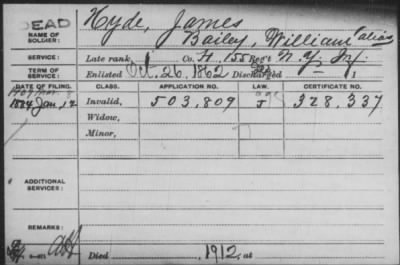 DEAD
NAME OF SOLDIER: Hyde, James
Bailey, William alias
SERVICE: Late rank, Co. H, 155 Reg't N.Y. Inf.
TERM OF SERVICE: Enlisted Oct. 26, 1862 Discharged 1
DATE OF FILING. CLASS. APPLICATION NO. LAW. CERTIFICATE NO.
1884 Jan. 12 Invalid, 503,809 J 328,337
Widow,
Minor,
ADDITIONAL SERVICES:
REMARKS:
Died 1912, at